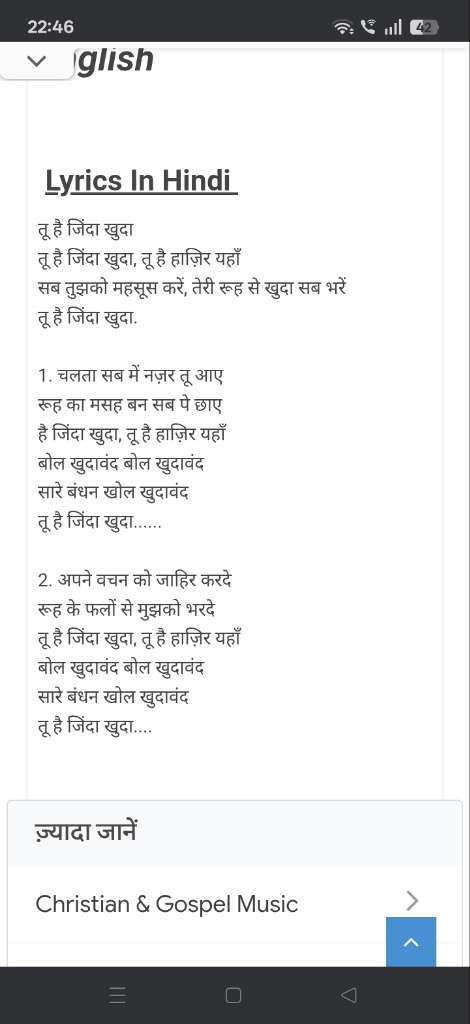 22:46
42
glish
Lyrics In Hindi
तू है जिंदा खुदा
तू है जिंदा खुदा, तू है हाज़िर यहाँ
सब तुझको महसूस करें, तेरी रूह से खुदा सब भरें
तू है जिंदा खुदा.
1. चलता सब में नज़र तू आए
रूह का मसह बन सब पे छाए
है जिंदा खुदा, तू है हाज़िर यहाँ
बोल खुदावंद बोल खुदावंद
सारे बंधन खोल खुदावंद
तू है जिंदा खुदा......
2. अपने वचन को जाहिर करदे
रूह के फलों से मुझको भरदे
तू है जिंदा खुदा, तू है हाज़िर यहाँ
बोल खुदावंद बोल खुदावंद
सारे बंधन खोल खुदावंद
तू है जिंदा खुदा....
ज़्यादा जानें
Christian & Gospel Music